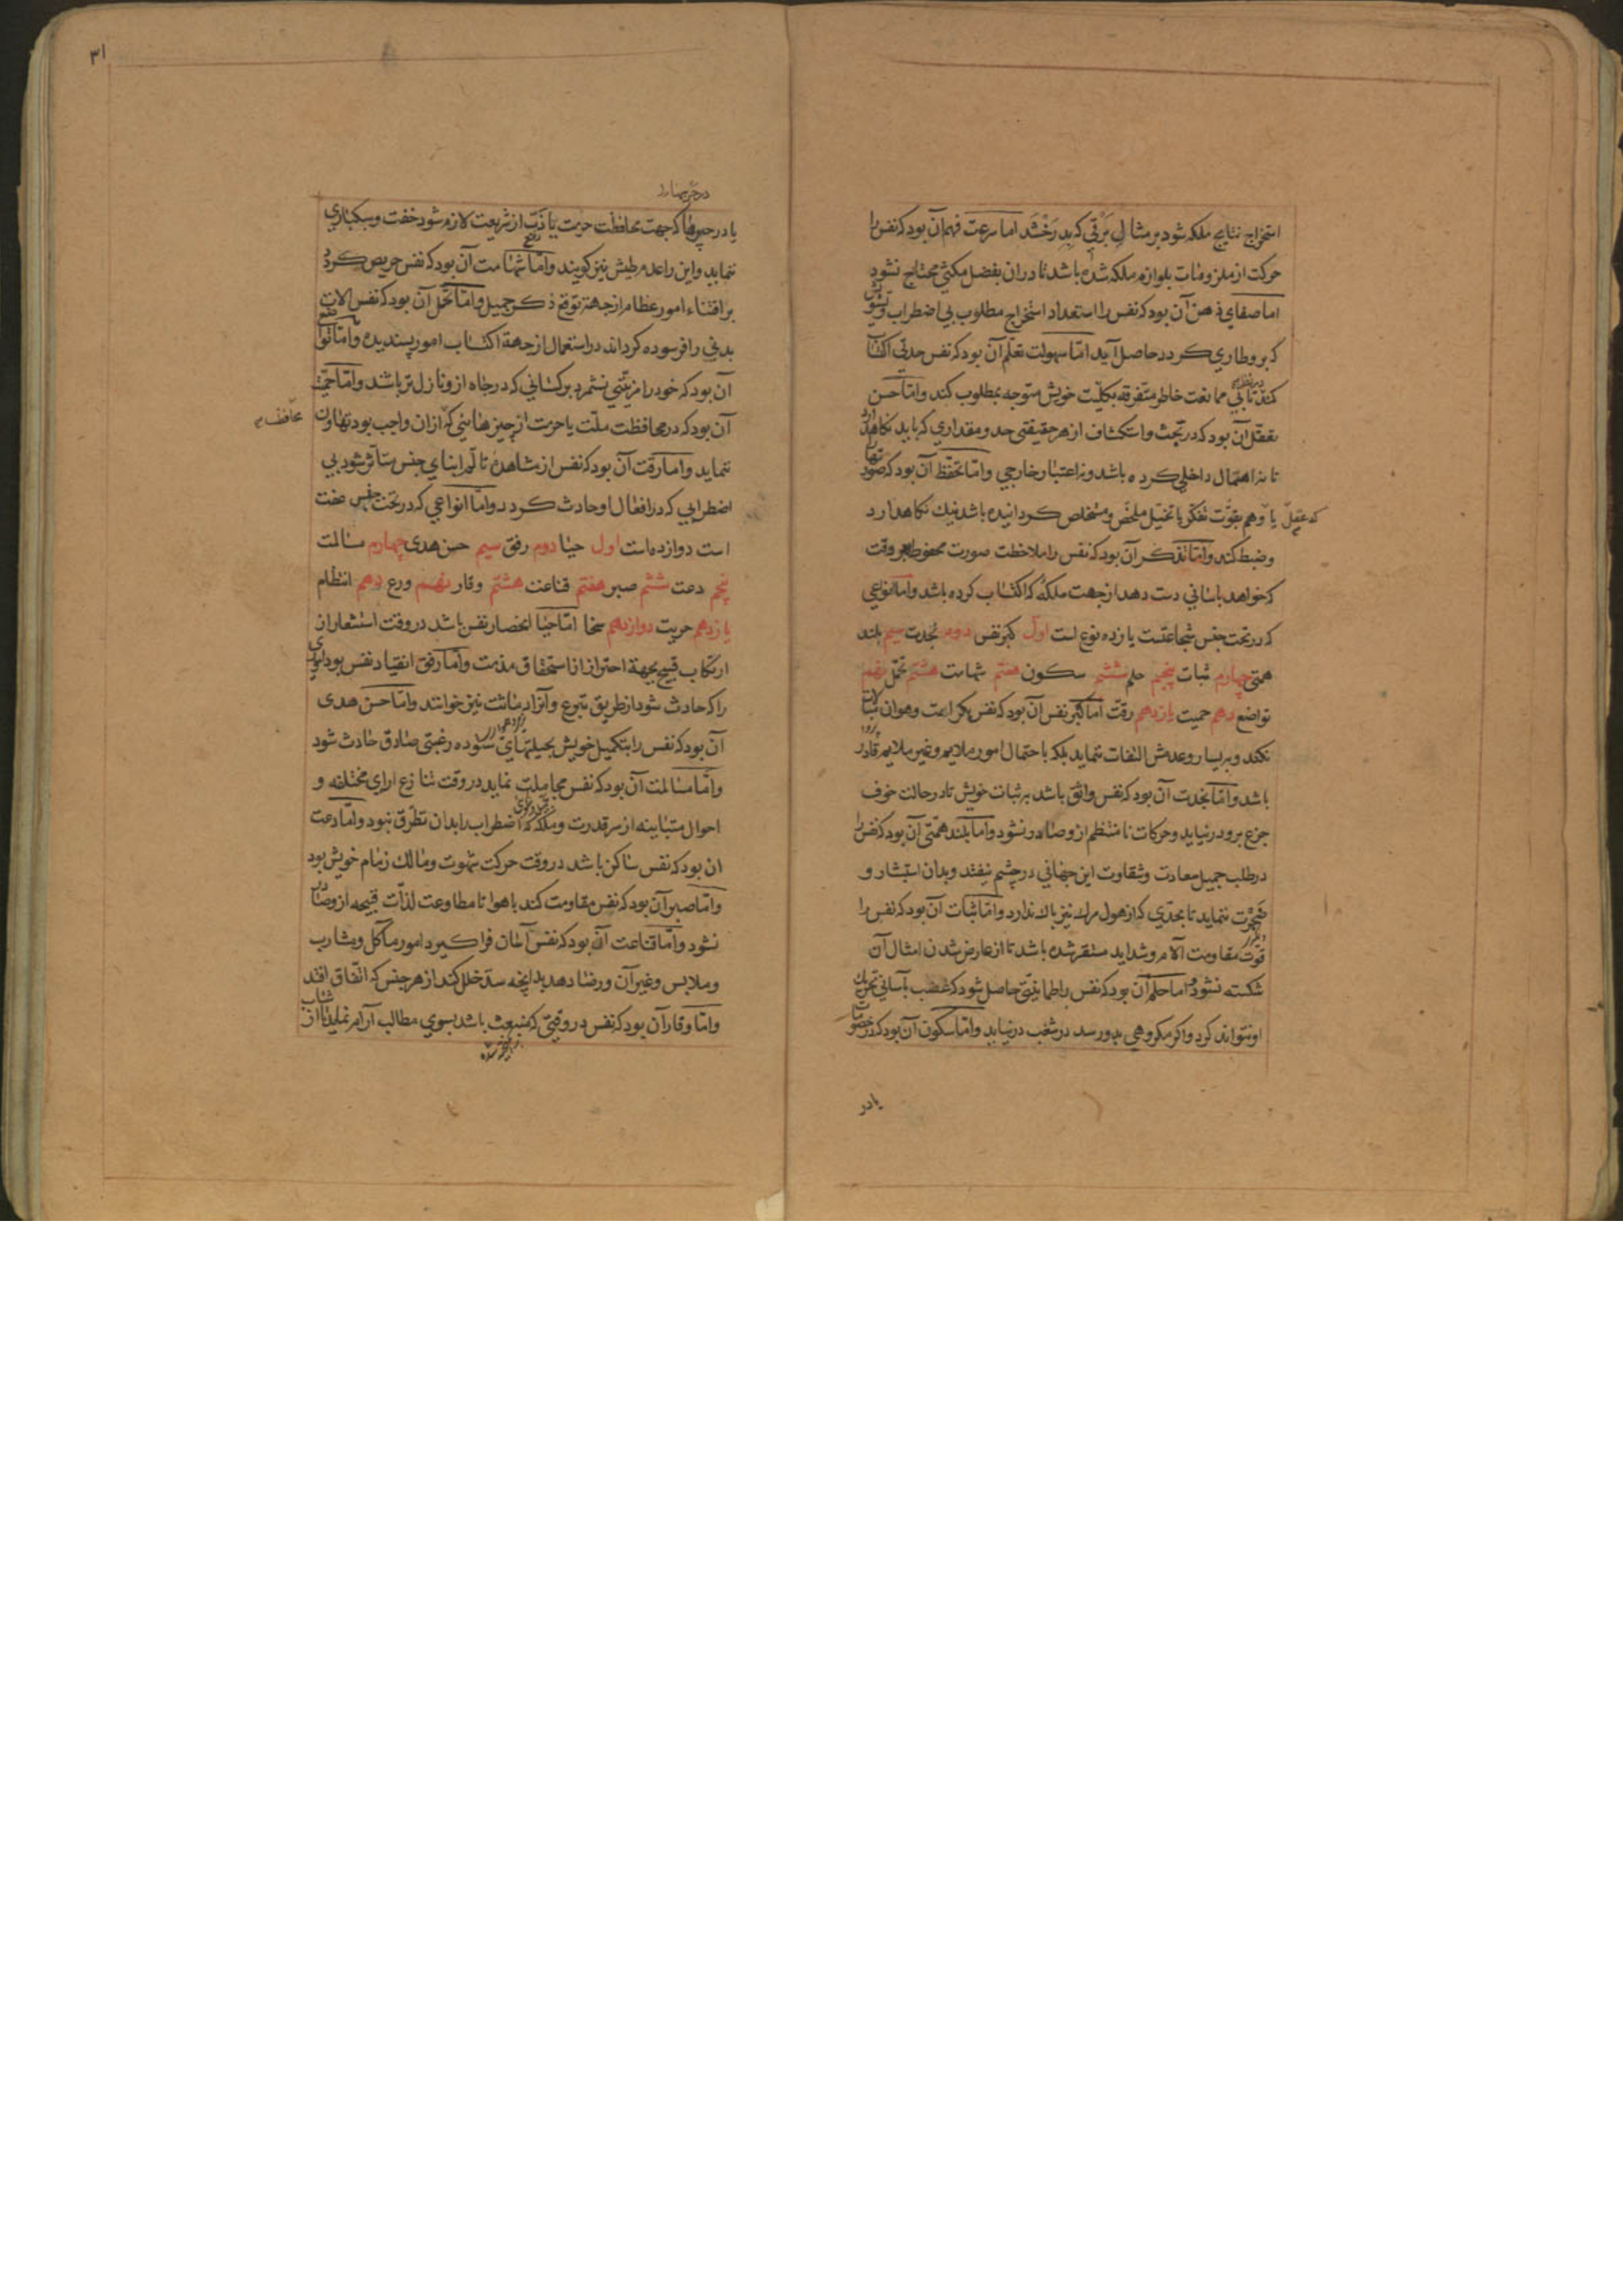 استخراج نتایج ملکه شود بر مثال برقی که بدرخشد اما سرعت فهم آن بود که نفس را
حرکت از ملزومات بلوازم ملکه شده باشد تا در ان بفضل مکثی محتاج نشود
اما صفای ذهن آن بود که نفس را استعداد استخراج مطلوب بی اضطراب و تشویش
که برو طاری گردد حاصل آید اما سهولت تعلم آن بود که نفس حدتی اکتساب
کند تا بی ممانعت خاطر متفرقه بکلیت خویش متوجه مطلوب کند و اما حسن
تعقل آن بود که در بحث و استکشاف از هر حقیقتی حد و مقداری که باید نگاه دارد
تا نه اهمال داخلی کرده باشد و نه اعتبار خارجی و اما تحفظ آن بود که صورتهای
که عقل یا وهم بقوت تفکر یا تخیل ملخص و متخلص گردانیده باشد نیک نگاهدارد
وضبط کند و اما تذکر آن بود که نفس را ملاحظت صورت محفوظه هر وقت
که خواهد باسانی دست دهد از جهت ملکه که اکتساب کرده باشد و اما انواعی
که در تحت جنس شجاعتست یازده نوع است اول کبر نفس دوم نجدت سیم بلند
همتی چهارم ثبات پنجم حلم ششم سکون هفتم شهامت هشتم تحمل نهم
تواضع دهم حمیت یازدهم رقت اما کبر نفس آن بود که نفس بکرامت و هوان مبالات
نکند و بیسار و عدمش التفات ننماید بلکه با احتمال امور ملایم و غیر ملایم قادر
باشد و اما نجدت آن بود که نفس واثق باشد بر ثبات خویش تا در حالت خوف
جزع برو در نیاید و حرکات نامنتظم ازو صادر نشود و اما بلند همتی آن بود که نفس را
در طلب جمیل سعادت و شقاوت این جهانی در چشم نیفتد و بدان استبشار و
ضجرت ننماید تا بحدی که از هول مرک نیز باک ندارد و اما ثبات آن بود که نفس را
قوت مقاومت آلام و شداید مستقر شده باشد تا از عارض شدن امثال آن
شکسته نشود و اما حلم آن بود که نفس را طمانینتی حاصل شود که غضب بآسانی تحریک
او نتواند کرد و اگر مکروهی بدو رسد در شغب در نیاید و اما سکون آن بود که در خصومات
یا در
۳۱
یا در حربها که جهت محافظت حرمت یا ذب از شریعت لازم شود خفت و سبکساری
ننماید و این را عدم طیش نیز گویند و اما شهامت آن بود که نفس حریص گردد
بر اقتناء امور عظام از جهة توقع ذکر جمیل و اما تحمل آن بود که نفس الات
بدنی را فرسوده گرداند در استعمال از جهة اکتساب امور پسندیده و اما تواضع
آن بود که خود را مزیتی نشمرد بر کسانی که در جاه ازو نازل تر باشند و اما حمیت
آن بود که در محافظت ملت یا حرمت از چیزهائی که ازان واجب بود تهاون
ننماید و اما رقت آن بود که نفس از مشاهده تالم ابنای جنس متاثر شود بی
اضطرابی که در افعال او حادث گردد و اما انواعی که در تحت جنس عفت
است دوازده است اول حیا دوم رفق سیم حسن هدی چهارم مسالمت
پنجم دعت ششم صبر هفتم قناعت هشتم وقار نهم ورع دهم انتظام
یازدهم حریت دوازدهم سخا اما حیا انحصار نفس باشد در وقت استشعار از
ارتکاب قبیح بجهة احتراز از استحقاق مذمت و اما رفق انقیاد نفس بود اموری
را که حادث شود از طریق تبرع و آنرا دماثت نیز خوانند و اما حسن هدی
آن بود که نفس را بتکمیل خویش بحیلتهای ستوده رغبتی صادق حادث شود
و اما مسالمت آن بود که نفس مجاملت نماید در وقت تنازع ارای مختلفه و
احوال متباینه از سر قدرت و ملکه که اضطراب را بدان تطرق نبود و اما دعت
ان بود که نفس ساکن باشد در وقت حرکت شهوت و مالک زمام خویش بود
و اما صبر آن بود که نفس مقاومت کند با هوا تا مطاوعت لذات قبیحه ازو صادر
نشود و اما قناعت آن بود که نفس آسان فرا گیرد امور مآکل و مشارب
و ملابس و غیر آن و رضا دهد بدانچه سد خلل کند از هر جنس که اتفاق افتد
و اما وقار آن بود که نفس در وقتی که منبعث باشد بسوی مطالب آرام نماید تا از شتاب